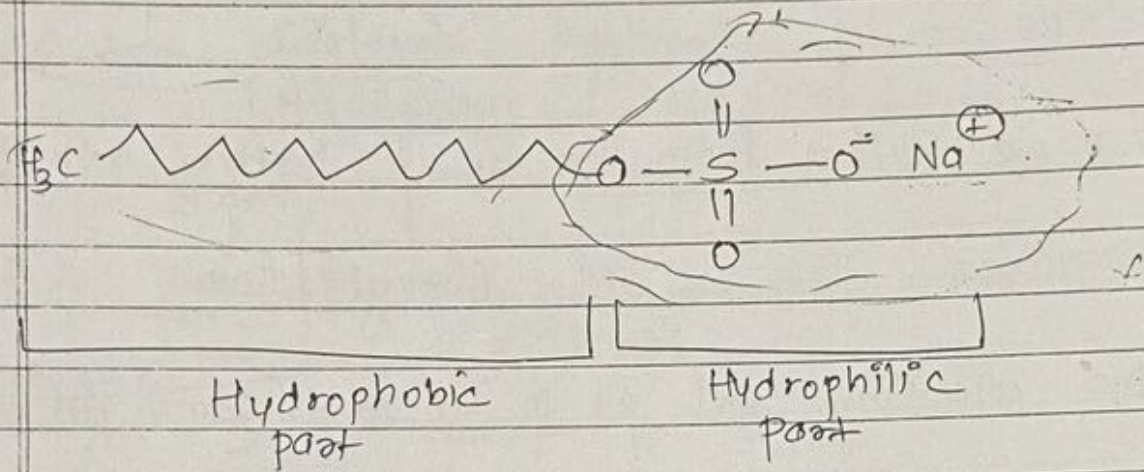 O
||
H3C O — S — O⁻ Na ⊕
||
O
Hydrophobic
part
Hydrophilic
part